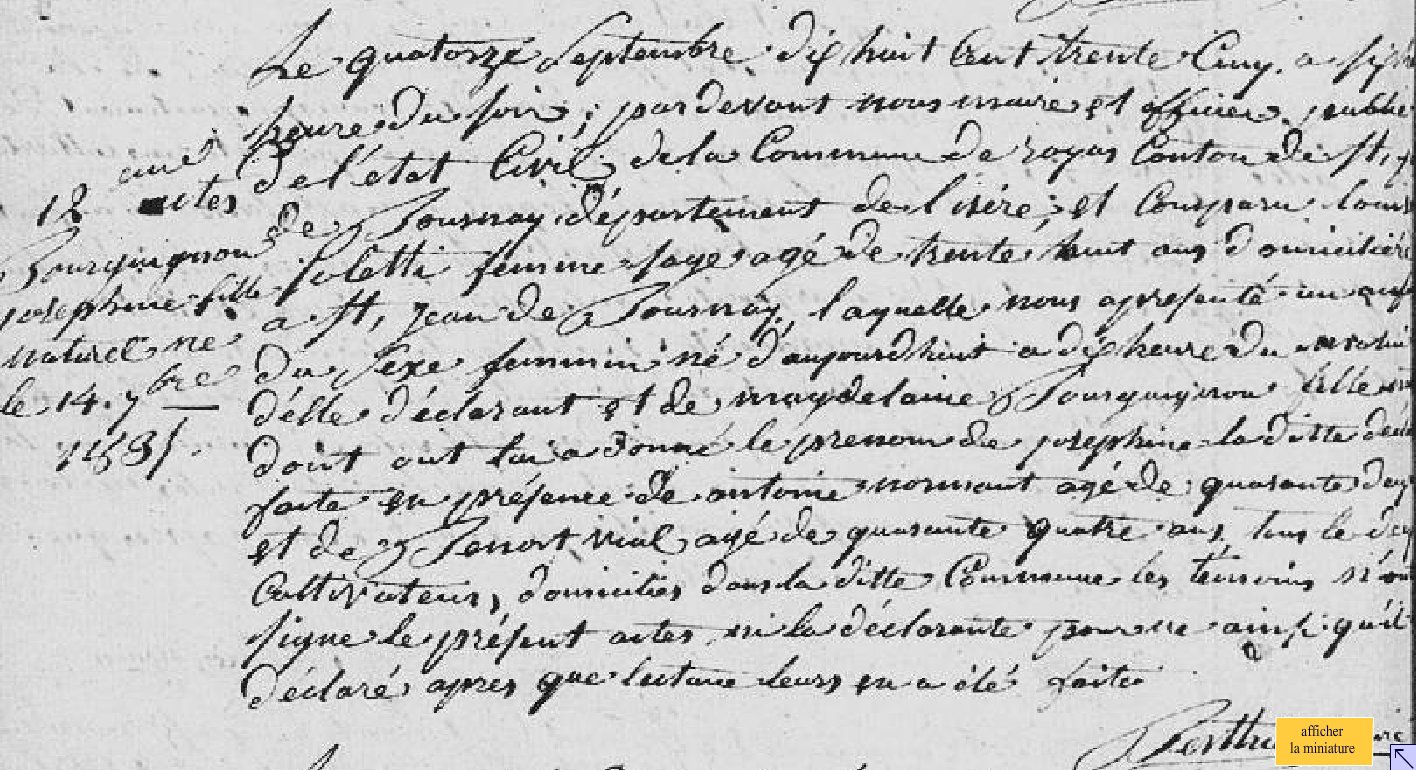 12 actes
Bourguignon
josephine fille
naturel ne
le 14. 7bre
1835.
Le quatorze Septembre dix huit Cent trente Cinq, a six
heure du soir; par devant nous maire et officier public
de l'état Civil de la Commune de royas Canton de St, j
de Bournay département de l'isére; et Comparu louise
coletti femme sage agé de trente huit ans domiciliée
a St, jean de Bournay, laquelle nous a présenté un enf
du Sexe feminin né d'aujourdhuit a dix heure du matin
d'élle déclarant et de magdelaine Bourguignon fille
doint ont lui a donné le prenom de josephine la ditte décl
faite en présence de antoine normant agé de quarante deux
et de Benoit vial agé de quarante quatre ans, tous le deux
Cultivateurs, domiciliés dans la ditte Commune les témoins n'ont
signe le présent actes ni la déclarante pour ne ainsi qu'il
déclaré apres que lecture leurs en a été faite
afficher
la miniature